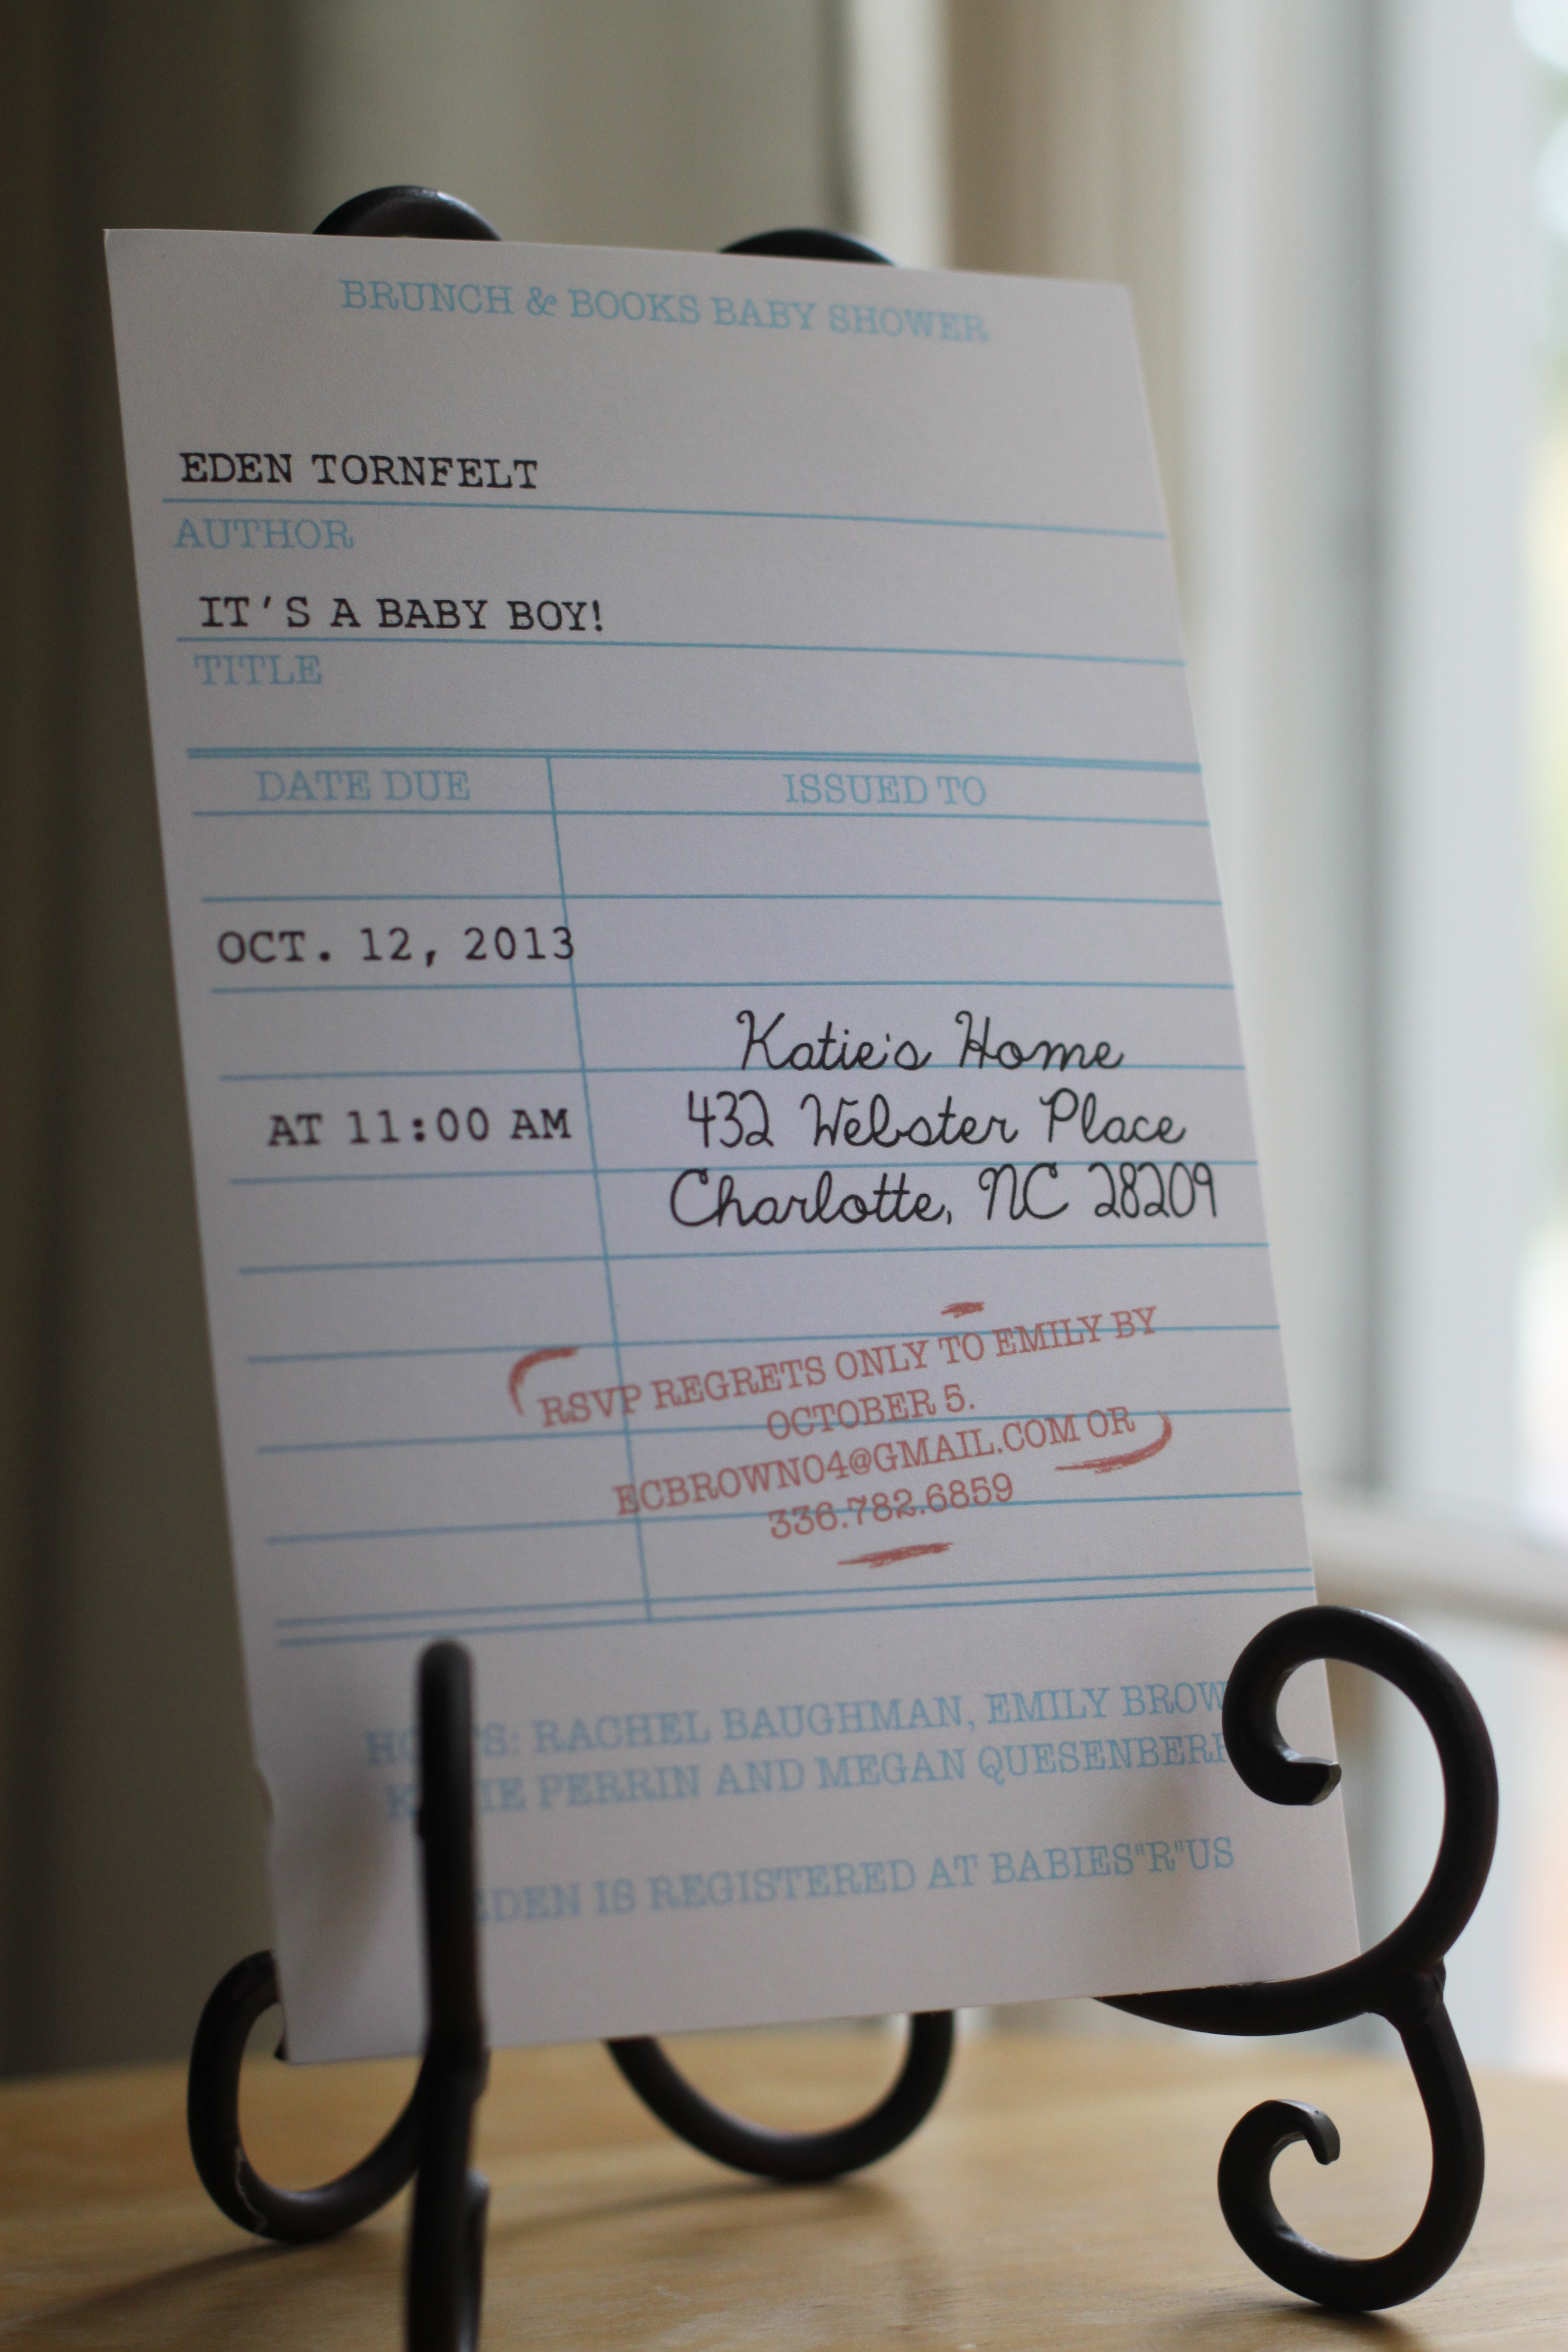 BRUNCH & BOOKS BABY SHOWER
EDEN TORNFELT
AUTHOR
IT'S A BABY BOY!
TITLE
DATE DUE ISSUED TO
OCT. 12, 2013
Katie's Home
AT 11:00 AM 432 Webster Place
Charlotte, NC 28209
RSVP REGRETS ONLY TO EMILY BY
OCTOBER 5.
ECBROWN04@GMAIL.COM OR
336.782.6859
RACHEL BAUGHMAN, EMILY
PERRIN AND MEGAN
EDEN IS REGISTERED AT BABIES"R"US